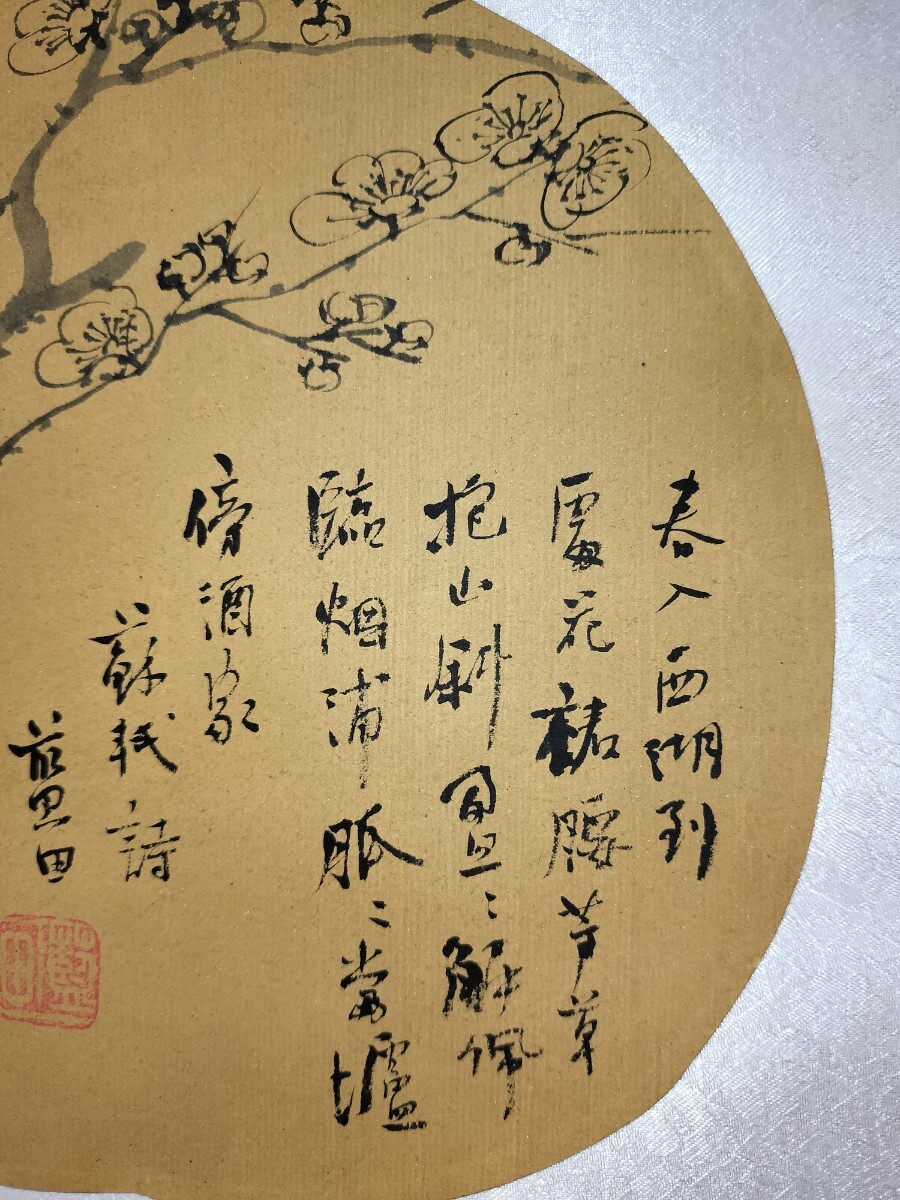 春入西湖到
處花裙腰芳草
抱山斜盈〻解佩
臨烟浦脈〻當壚
傍酒家
蘇軾詩
藍田
藍田